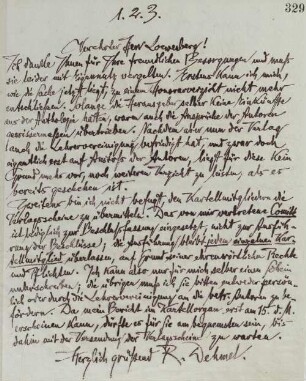 329
1. 2. 3.
Verehrter Herr Loewenberg!
Ich danke Ihnen für Ihre freundlichen Besorgungen und muß
sie leider mit Eigennutz vergelten. Erstens kann ich mich,
wie die Sache jetzt liegt, zu einem Honorarverzicht nicht mehr
entschließen. Solange die Herausgeber selber keine Einkünfte
aus der Anthologie hatten, waren auch die Ansprüche der Autoren
übertrieben. Nachdem aber nun der Verlag
auch die Lehrervereinigung befriedigt hat, und zwar doch
eigentlich erst auf Antrieb der Autoren, liegt für diese kein
Grund mehr vor, noch weiteren Verzicht zu leisten, als er
bereits geschehen ist.
Zweitens bin ich nicht befugt, den Kartellmitgliedern die
Verlagsscheine zu übermitteln. Das von mir vertretene Comité
ist lediglich zur Beschlußfassung eingesetzt, nicht zur Ausfüh-
rung der Beschlüsse; die Ausführung bleibt jedem einzelnen Kar-
tellmitglied überlassen, auf Grund seiner Rechte
und Pflichten. Ich kann also nur für mich selber einen Schein
unterschreiben; die übrigen muß ich Sie bitten entweder persön-
lich oder durch die Lehrervereinigung an die betr. Autoren zu be-
fördern. Da mein Bericht im Kartellorgan erst am 15. d. M.
erscheinen kann, dürfte es für Sie am bequemsten sein, bis
dahin mit der Versendung der Verlagsscheine zu warten.
Herzlich grüßend R. Dehmel.